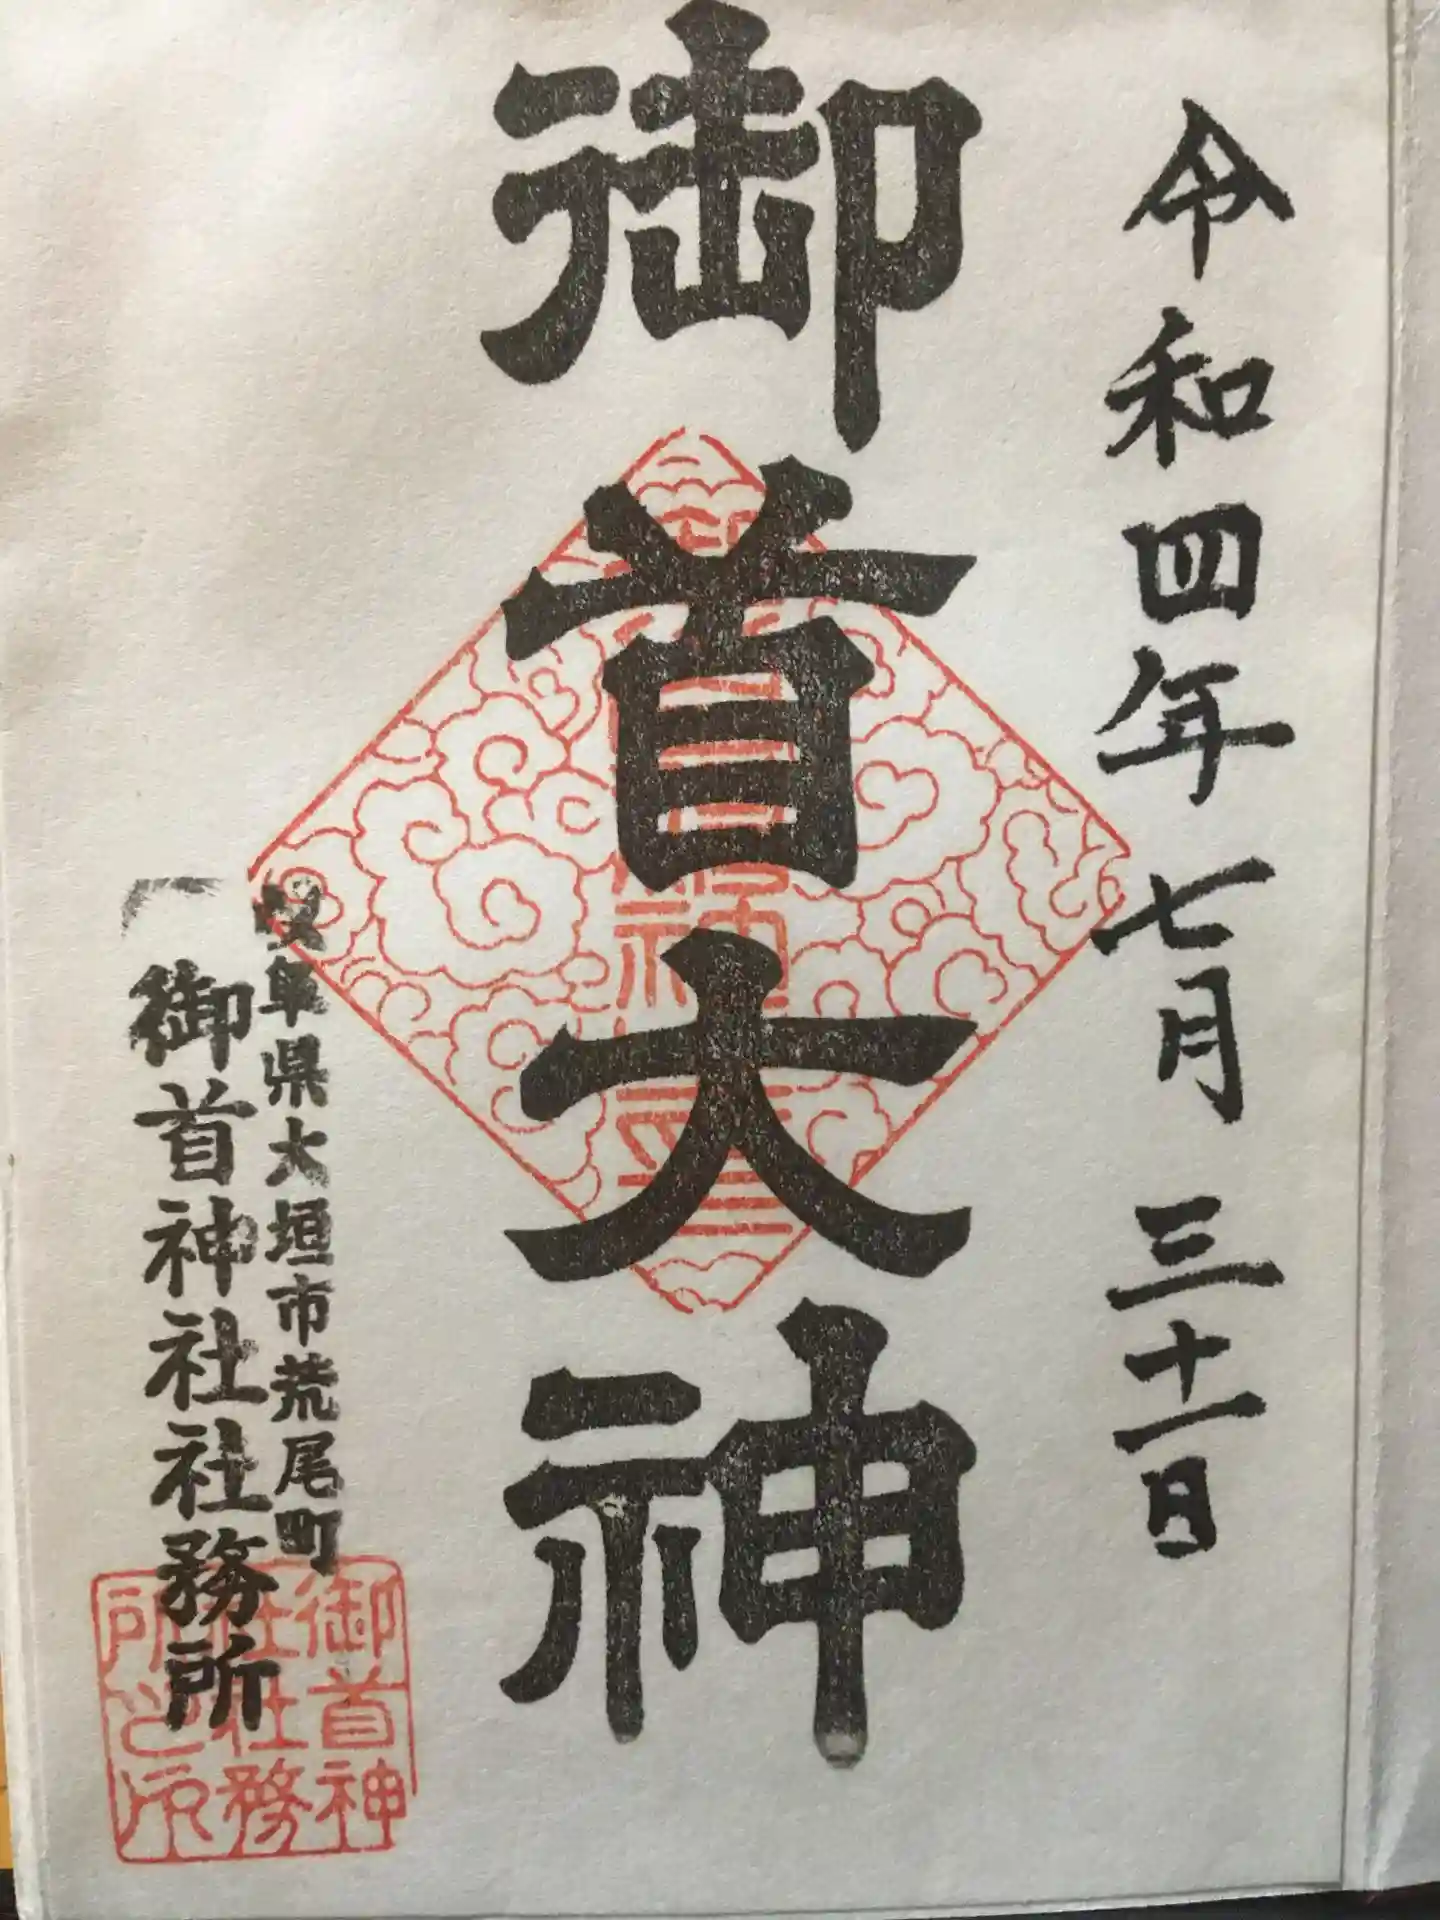 令和四年七月三十一日
御首大神
岐阜県大垣市荒尾町
御首神社社務所
御首神社社務所之印